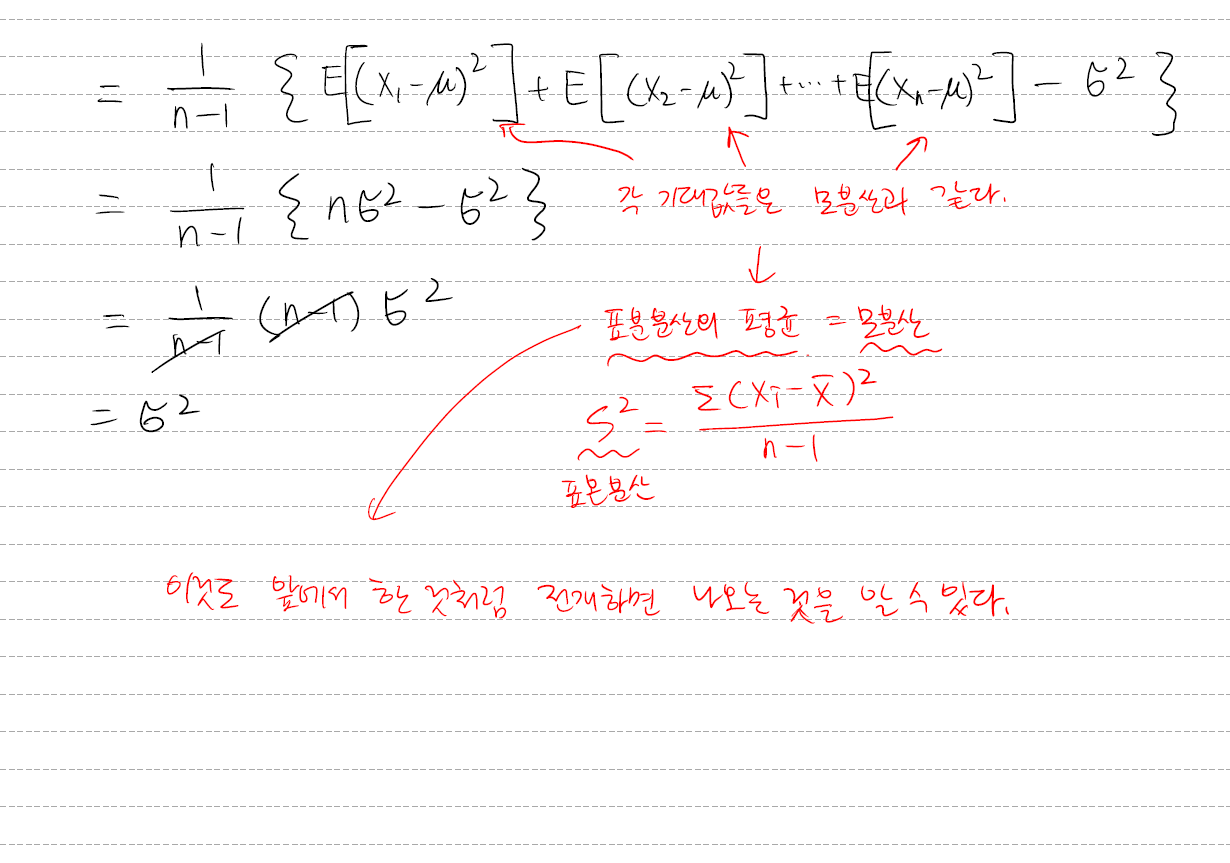 = 1/(n-1) { E[(X₁-μ)²] + E[(X₂-μ)²] + ⋯ + E[(Xₙ-μ)²] - σ² }
= 1/(n-1) { nσ² - σ² }
각 기대값들은 모분산과 같다.
↓
= 1/(n-1) (n-1) σ²
표분분산의 평균 = 모분산
= σ²
S² = Σ(Xi-X̄)²/(n-1)
표본분산
이것도 앞에서 한 것처럼 전개하면 나오는 것을 알 수 있다.